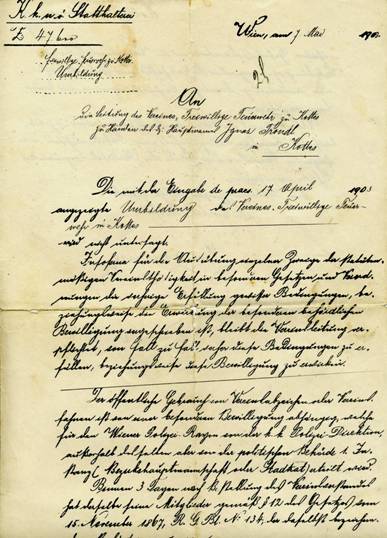 K. k. n. ö. Statthalterei
Z 47
Wien, am 7 Mai 190
Freiwillige Feuerwehr zu Kottes
Umbildung
An
die Leitung des Vereines „Freiwillige Feuerwehr zu Kottes
zu Handen des H: Hauptmannes Ignaz
in Kottes
Die mit der Eingabe de praes. 17. April 190
angezeigte Umbildung des Vereines „Freiwillige Feuer-
wehr in Kottes
wird nicht untersagt.
Insoferne für die Ausübung einzelner Zweige der statuten-
mäßigen Vereinsthätigkeit in besonderen Gesetzen und Verord-
nungen die vorherige Erfüllung gewisser Bedingungen, be-
ziehungsweise die Erwirkung der besonderen behördlichen
Bewilligung vorgeschrieben ist, bleibt die Vereinsleitung ver-
pflichtet, von Fall zu Fall vorher diese Bedingungen zu er-
füllen, beziehungsweise diese Bewilligung zu erwirken.
Der öffentliche Gebrauch von Vereinsabzeichen oder Vereins-
fahnen ist von einer besonderen Bewilligung abhängig, welche
für den Wiener Polizei-Rayon von der k. k. Polizei-Direktion,
außerhalb desselben aber von der politischen Behörde I. In-
stanz (Bezirkshauptmannschaft oder Stadtrat) ertheilt wird.
Binnen 3 Tagen nach Bestellung des Vereinsvorstandes
hat derselbe seine Mitglieder gemäß § 12 des Gesetzes vom
15. November 1867, R. G. Bl. N 134, der daselbst bezeichn-